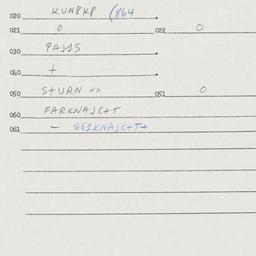 020 KUN8KP (864
021 0 022 0
030 PAJ15
040 +
050 S+URN <> 051 0
060 FARKNAJC+T
061 - QG1KNAJC+T+